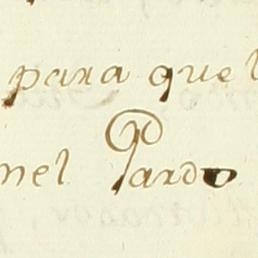 para que
nel Pardo